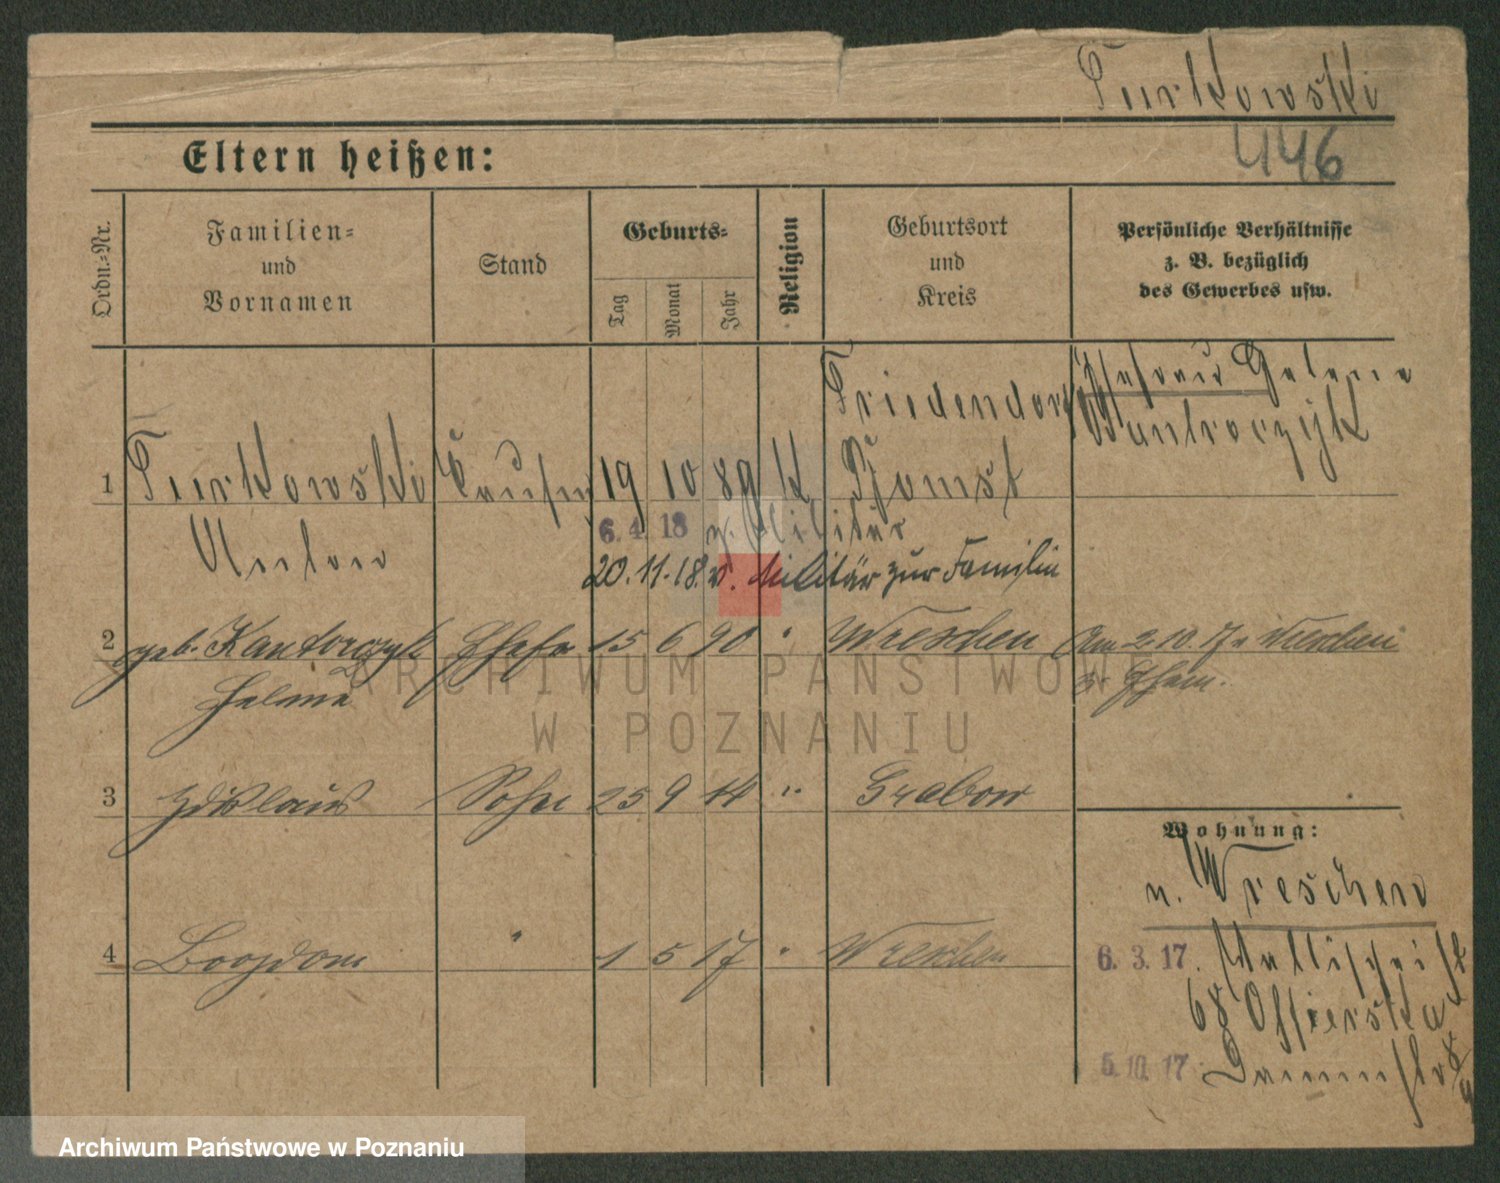 Turkowski
446
Eltern heißen:
Ordn.-Nr.
Familien-
und
Vornamen
Stand
Geburts-
Tag
Monat
Jahr
Religion
Geburtsort
und
Kreis
Persönliche Verhältnisse
z. B. bezüglich
des Gewerbes usw.
Ehefrau Helene
Friedendorf
Kantorczyk
1 Turkowski 19 10 89 K Bomst
Anton
6. 4. 18 z. Militär
20. 11. 18. v. Militär zur Familie
2 geb. Kantorczyk Ehefr 15 6 90 " Wreschen Am 2. 10. 17 n Wreschen
Helene z. Ehem.
3 Zdislaus Sohn 25 9 14 " Grabow
Wohnung:
n. Wreschen
4 Bogdan " 1 5 17 " Wreschen
6. 3. 17.
68
5. 10. 17
ARCHIWUM PAŃSTWOWE
W POZNANIU
Archiwum Państwowe w Poznaniu